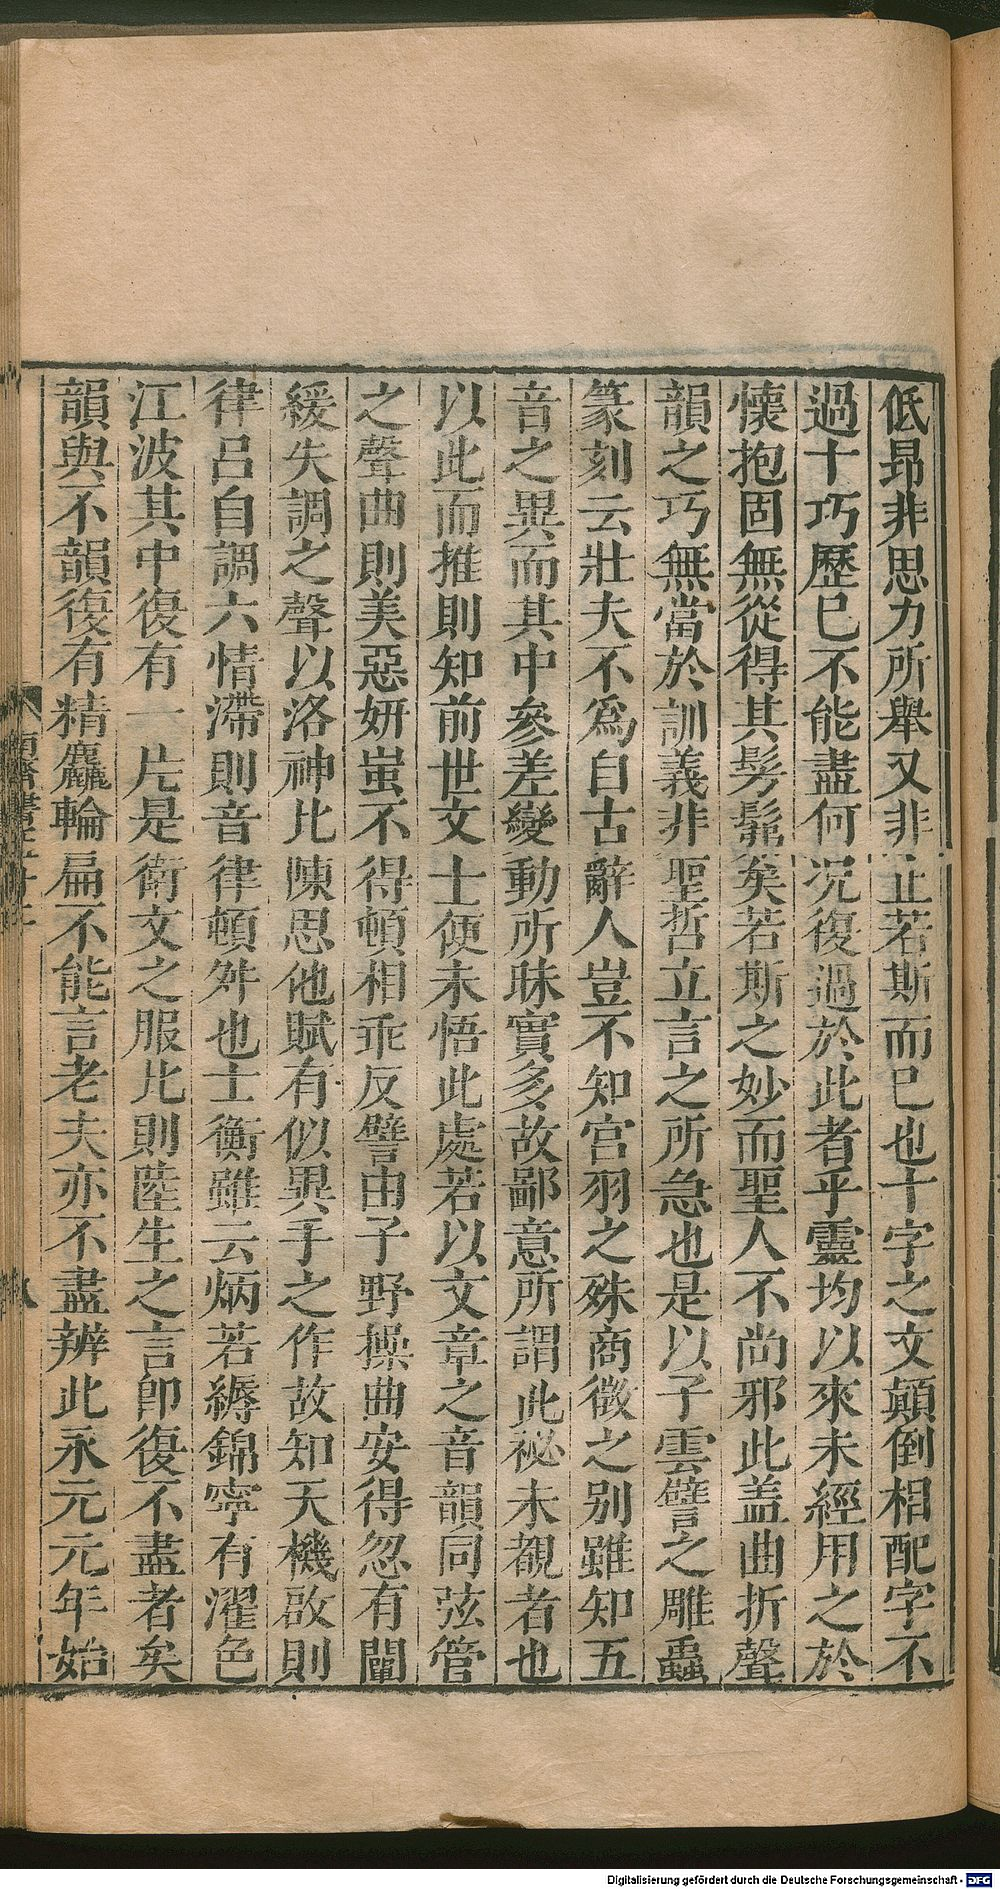 低昂非思力所舉又非止若斯而已也十字之文顛倒相配字不
過十巧歷已不能盡何况復過於此者乎靈均以來未經用之於
懐抱固無從得其髣髴矣若斯之妙而聖人不尚邪此盖曲折聲
韻之巧無當於訓義非聖哲立言之所急也是以子雲譬之雕蟲
篆刻云壯夫不爲自古辭人豈不知宫羽之殊商徵之别雖知五
音之異而其中參差變動所昧實多故鄙意所謂此祕未覩者也
以此而推則知前世文士便未悟此處若以文章之音韻同弦管
之聲曲則美惡妍蚩不得頓相乖反譬由子野操曲安得忽有闡
緩失調之聲以洛神比陳思他賦有似異手之作故知天機啟則
律吕自調六情滯則音律頓舛也士衡雖云炳若縟錦寧有濯色
江波其中復有一片是衛文之服此則陸生之言即復不盡者矣
韻與不韻復有精麤輪扁不能言老夫亦不盡辨此永元元年始
Digitalisierung gefördert durch die Deutsche Forschungsgemeinschaft - DFG